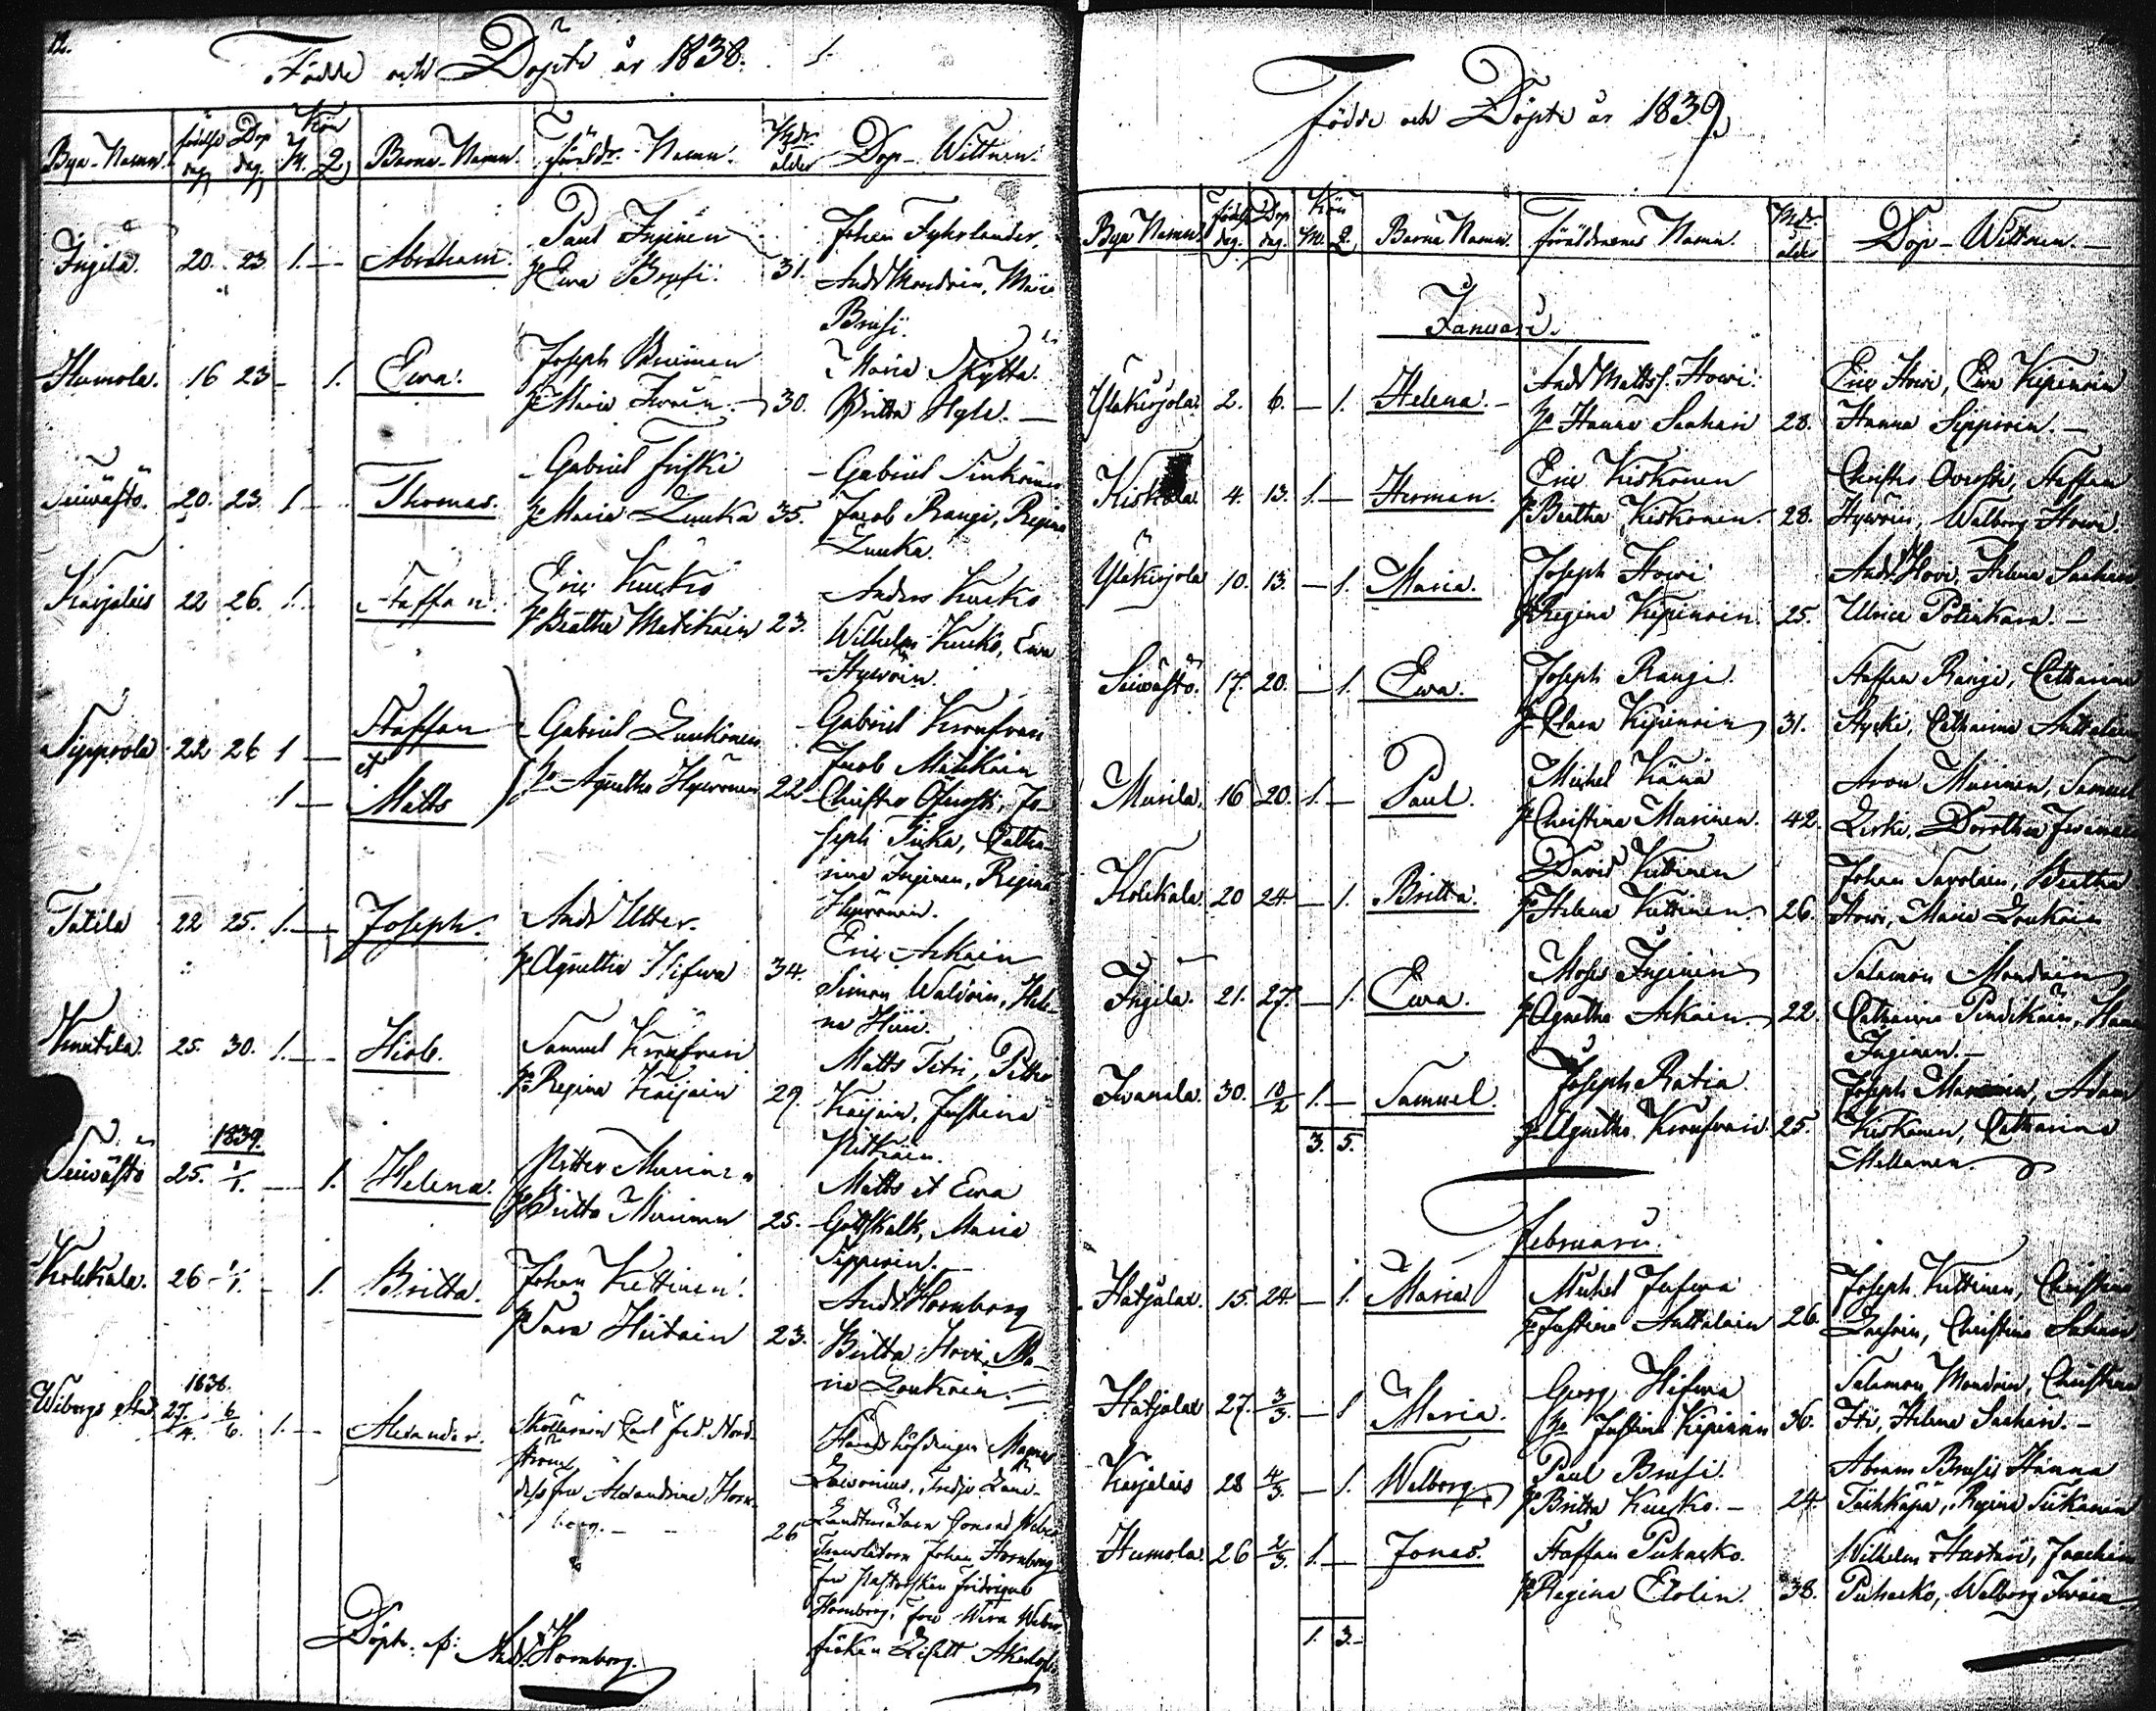 12.
Födde och Döpte år 1838. 1.
Bya-Namn. födelse dag Dop dag. Kön M. Q Barna-Namn. Föräldr.-Namn. Mdrs ålder Dop-Wittnen.
Ingilä. 20. 23. 1. — Abraham. Paul Inginen
H. Ewa Brusi. 31.
Johan Fyhrlander,
And. Mondoin, Maria
Brusi.
Humola. 16 23 — 1. Ewa. Joseph
H. Maria Iwoin. 30.
Maria Skyttä.
Britta Hyle. —
Seiwästö. 20. 23. 1 Thomas. Gabriel Friski
H. Maria Luuka 35.
Gabriel Sinkonen
Jacob Rangi, Regina
Luuka.
Karjalais 22 26. 1. Staffan. Eric Kucko
H. Beatha Matikain 23.
Anders Kucko
Wilhelm Kucko, Ewa
Hywöin.
Sipprola 22 26 1 — Staffan
et
1 — Matts
Gabriel Luukonen
H. Agnetha Hywönen 22
Gabriel Kruufvan
Jacob Matikain
Christer Ofverski, Jo-
seph Tuka, Catha-
rina Inginen, Regina
Hywönen.
Tatila 22 25. 1. — Joseph. And. Utter.
H. Agnetha Hifwa 34.
Eric Arkain
Simon Waldoin, Hele-
na Hiiri.
Knutila. 25. 30. 1. — Hiob. Samuel Kruufvan
H. Regina Kaijain 29.
Matts Tetri, Petter
Kaijain, Justina
Pitkäin.
1839.
Seiwästö 25. 1/1. — 1. Helena. Petter Murinen
H. Britta Murinen 25.
Matts et Ewa
Gottskalk, Maria
Sipproin.
Kolkkala. 26 1/1. — 1. Britta. Johan Kuttinen.
H. Sara Hietain 23.
And. Hornborg
Britta Hovi, Ma-
ria Loukoin.
1838.
Wiborgs Stad 27/4. 6/6. 1. — Alexander. Carl Fred. Nord-
ström
dess fru Alexandrine Horn-
borg. — 26
Häradshöfdingen Magnus
Landtmätaren Conrad Weber
Translatorn Johan Hornborg
Hornborg, Fru Wera Weber,
Döpte. af: And. Hornborg.
Födde och Döpte år 1839
Bya Namn. födelse dag. Dop dag. Kön M. Q. Barna Namn. Föräldrarnes Namn. Mdrs ålder Dop-Wittnen. —
Januari.
Yläkirjola. 2. 6. — 1. Helena. — And. Mattss. Howi.
H. Hanna Saahari 28.
Eric Howi, Ewa Kipinoin
Hanna Sipproin. —
Kiskola 4. 13. 1. — Herman. Eric Kiskonen
H. Beatha Kiskonen. 28.
Christer Overski, Staffan
Hywöin, Walborg Howi.
Yläkirjola 10. 13. — 1. Maria. Joseph Howi
H. Regina Kipinoin. 25.
And. Hovi, Helena Saahari
Ulrica Potinkara. —
Seiwästö. 17. 20. — 1. Ewa. Joseph Rangi
H. Clara Kipinoin 31.
Staffan Rangi, Catharina
Hycki, Catharina Anttalain
Murila. 16 20. 1. — Paul. Michel Kärnä
H. Christina Murinen. 42.
Aron Murinen, Samuel
Leski, Dorothea Iwanain
Kolkkala. 20 24. — 1. Britta. David Kuttinen
H. Helena Kuttinen. 26.
Johan Savolain, Beatha
Howi, Maria Loukoin
Ingilä. 21. 27. — 1. Ewa. Moses Inginen
H. Agnetha Arkain. 22.
Salamon Mondoin
Catharina Pindikäin, Hanna
Inginen. —
Iwanala. 30. 10/2 1. — Samuel. Joseph Ratia
H. Agnetha Kruufvan. 25.
Joseph Murinen, Adam
Kiskonen, Catharina
Mellanen.
3. 5.
Februari.
Hatjalax. 15. 24. — 1. Maria Michel Jufwa
H. Justina Anttalain 26.
Joseph Kuttinen, Christina
Christina Saharin
Hatjalax 27. 3/3. — 1 Maria. Georg Hifwa
H. Justina Kipinoin 36.
Salamon Mondoin, Christina
Iti, Helena Saahari. —
Karjalais 28 4/3. — 1. Walborg. Paul Brusi.
H. Britta Kucko. — 24.
Abram Brusi, Hanna
Tuhkapä, Regina Siikanen
Humola 26 2/3. 1. — Jonas. Staffan Pukarko.
H. Regina Elolin. 38.
Wilhelm Hartain, Joachim
Pukarko, Walborg Iwoin
1. 3.